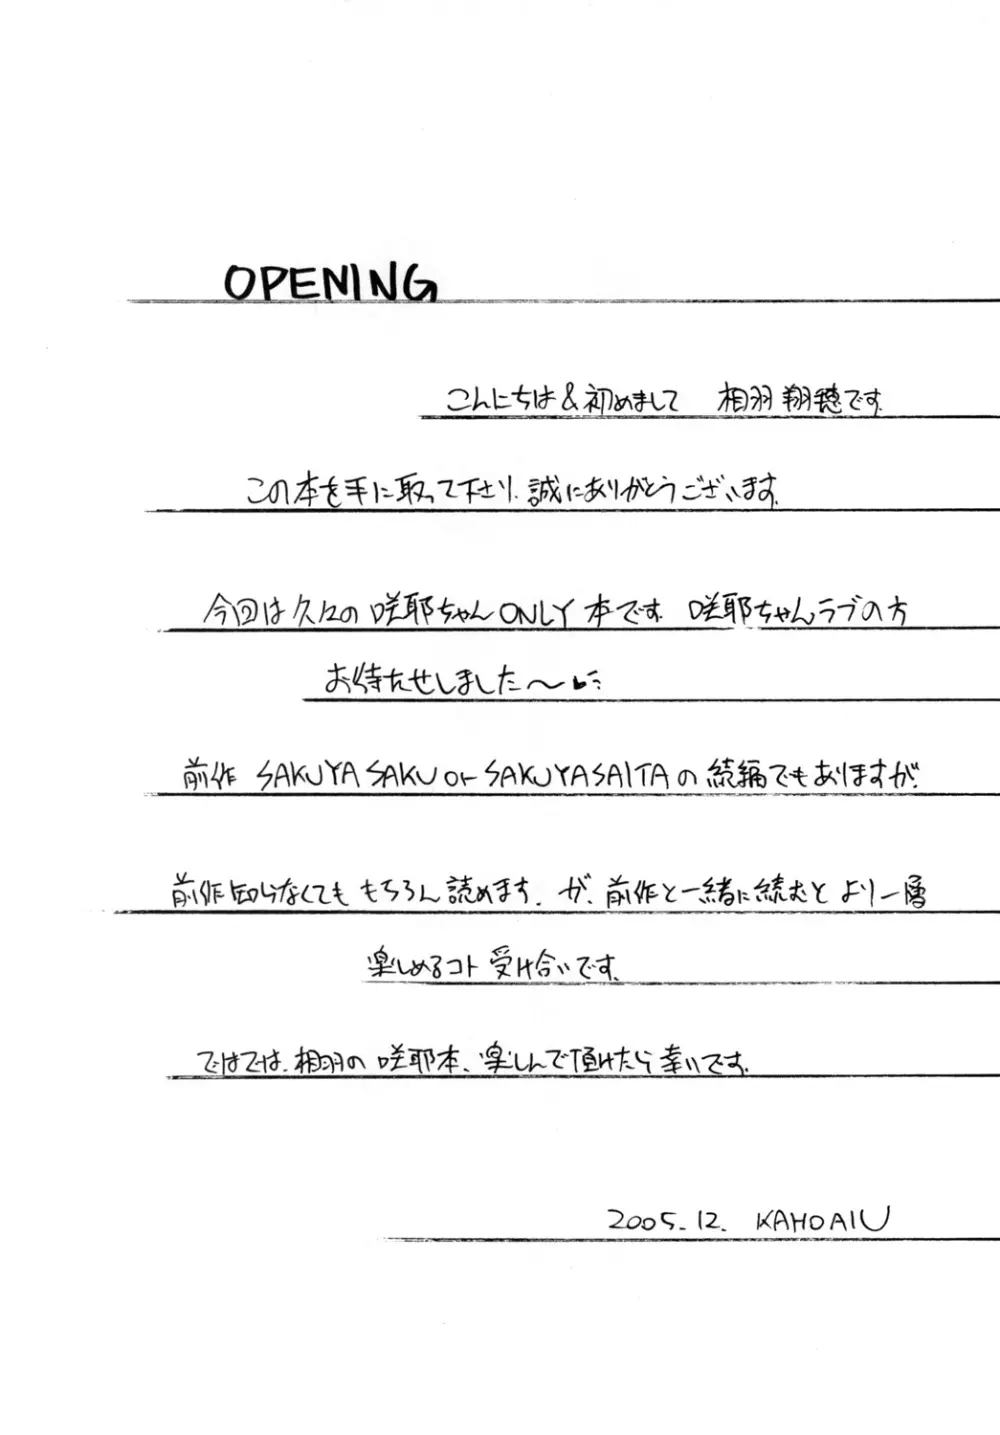 OPENING
こんにちは&初めまして 相羽翔穂です
この本を手に取って下さり、誠にありがとうございます。
今回は久々の咲耶ちゃんONLY本です。咲耶ちゃんラブの方
お待たせしました〜
前作 SAKUYA SAKU or SAKUYA SAITAの続編でもありますが、
前作知らなくても もちろん読めます。が、前作と一緒に続むと より一層
楽しめるコト 受け合いです。
ではでは、相羽の 咲耶本、楽しんで頂けたら幸いです。
2005.12. KAHO AIU